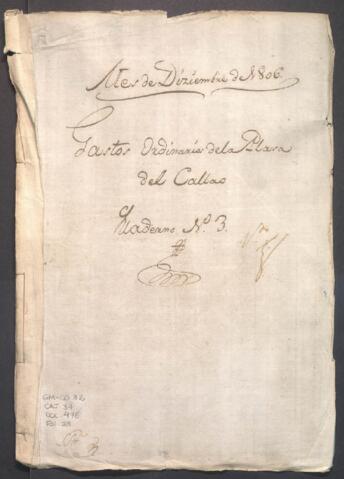 Mes de Diziembre de 1806.
Gastos Ordinarios de la Plasa
del Callao
Quaderno N.º 3.
GM-CO 32
CAJ 37
DOC 476
FOL 23